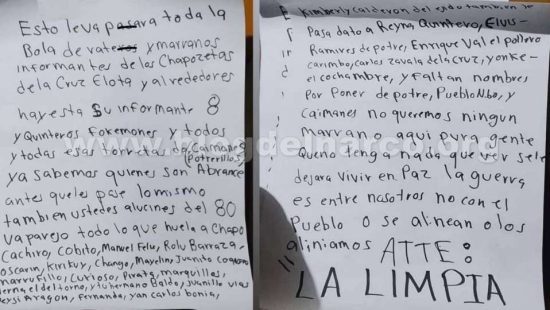 Esto leva pasara toda la
Bola de vateros y marranos
informantes de las Chapozetas
de la Cruz Elota y alrededores
hay esta su informante 8
y Quinteros Fokemones y todos
y todas esas torretas de Caimanes
Potrerillos
ya sabemos quienes son Abrance
antes queles pase lo mismo
tambien ustedes alucines del 80
va parejo todo lo que huela a Chapo
Cachiro, Cobito, Manuel Felix, Rolu Barraza
oscarin, Kirikuy, Chango, Mayelin, Juanito
marrufillo, Curioso, Pirata, marquillos,
el del torno, y tu hermano Baldo, Juanillo
Aragon, fernanda, yan carlos bonia,
Kimberly calderon del
Pasa dato a Reyna Quintero, Elvis
Ramires de potre, Enrique Val el pollero
carimbo, carlos zavala de la cruz, yonke
el cochambre, y Faltan nombres
Por Poner de potre, Pueblo Nbo, y
Caimanes no queremos ningun
marrano aqui pura gente
Queno tenga nada que ver sele
dejara vivir en Paz la guerra
es entre nosotros no con el
Pueblo o se alinean olos
aliniamos ATTE:
"LA LIMPIA
www.blogdelnarco.org